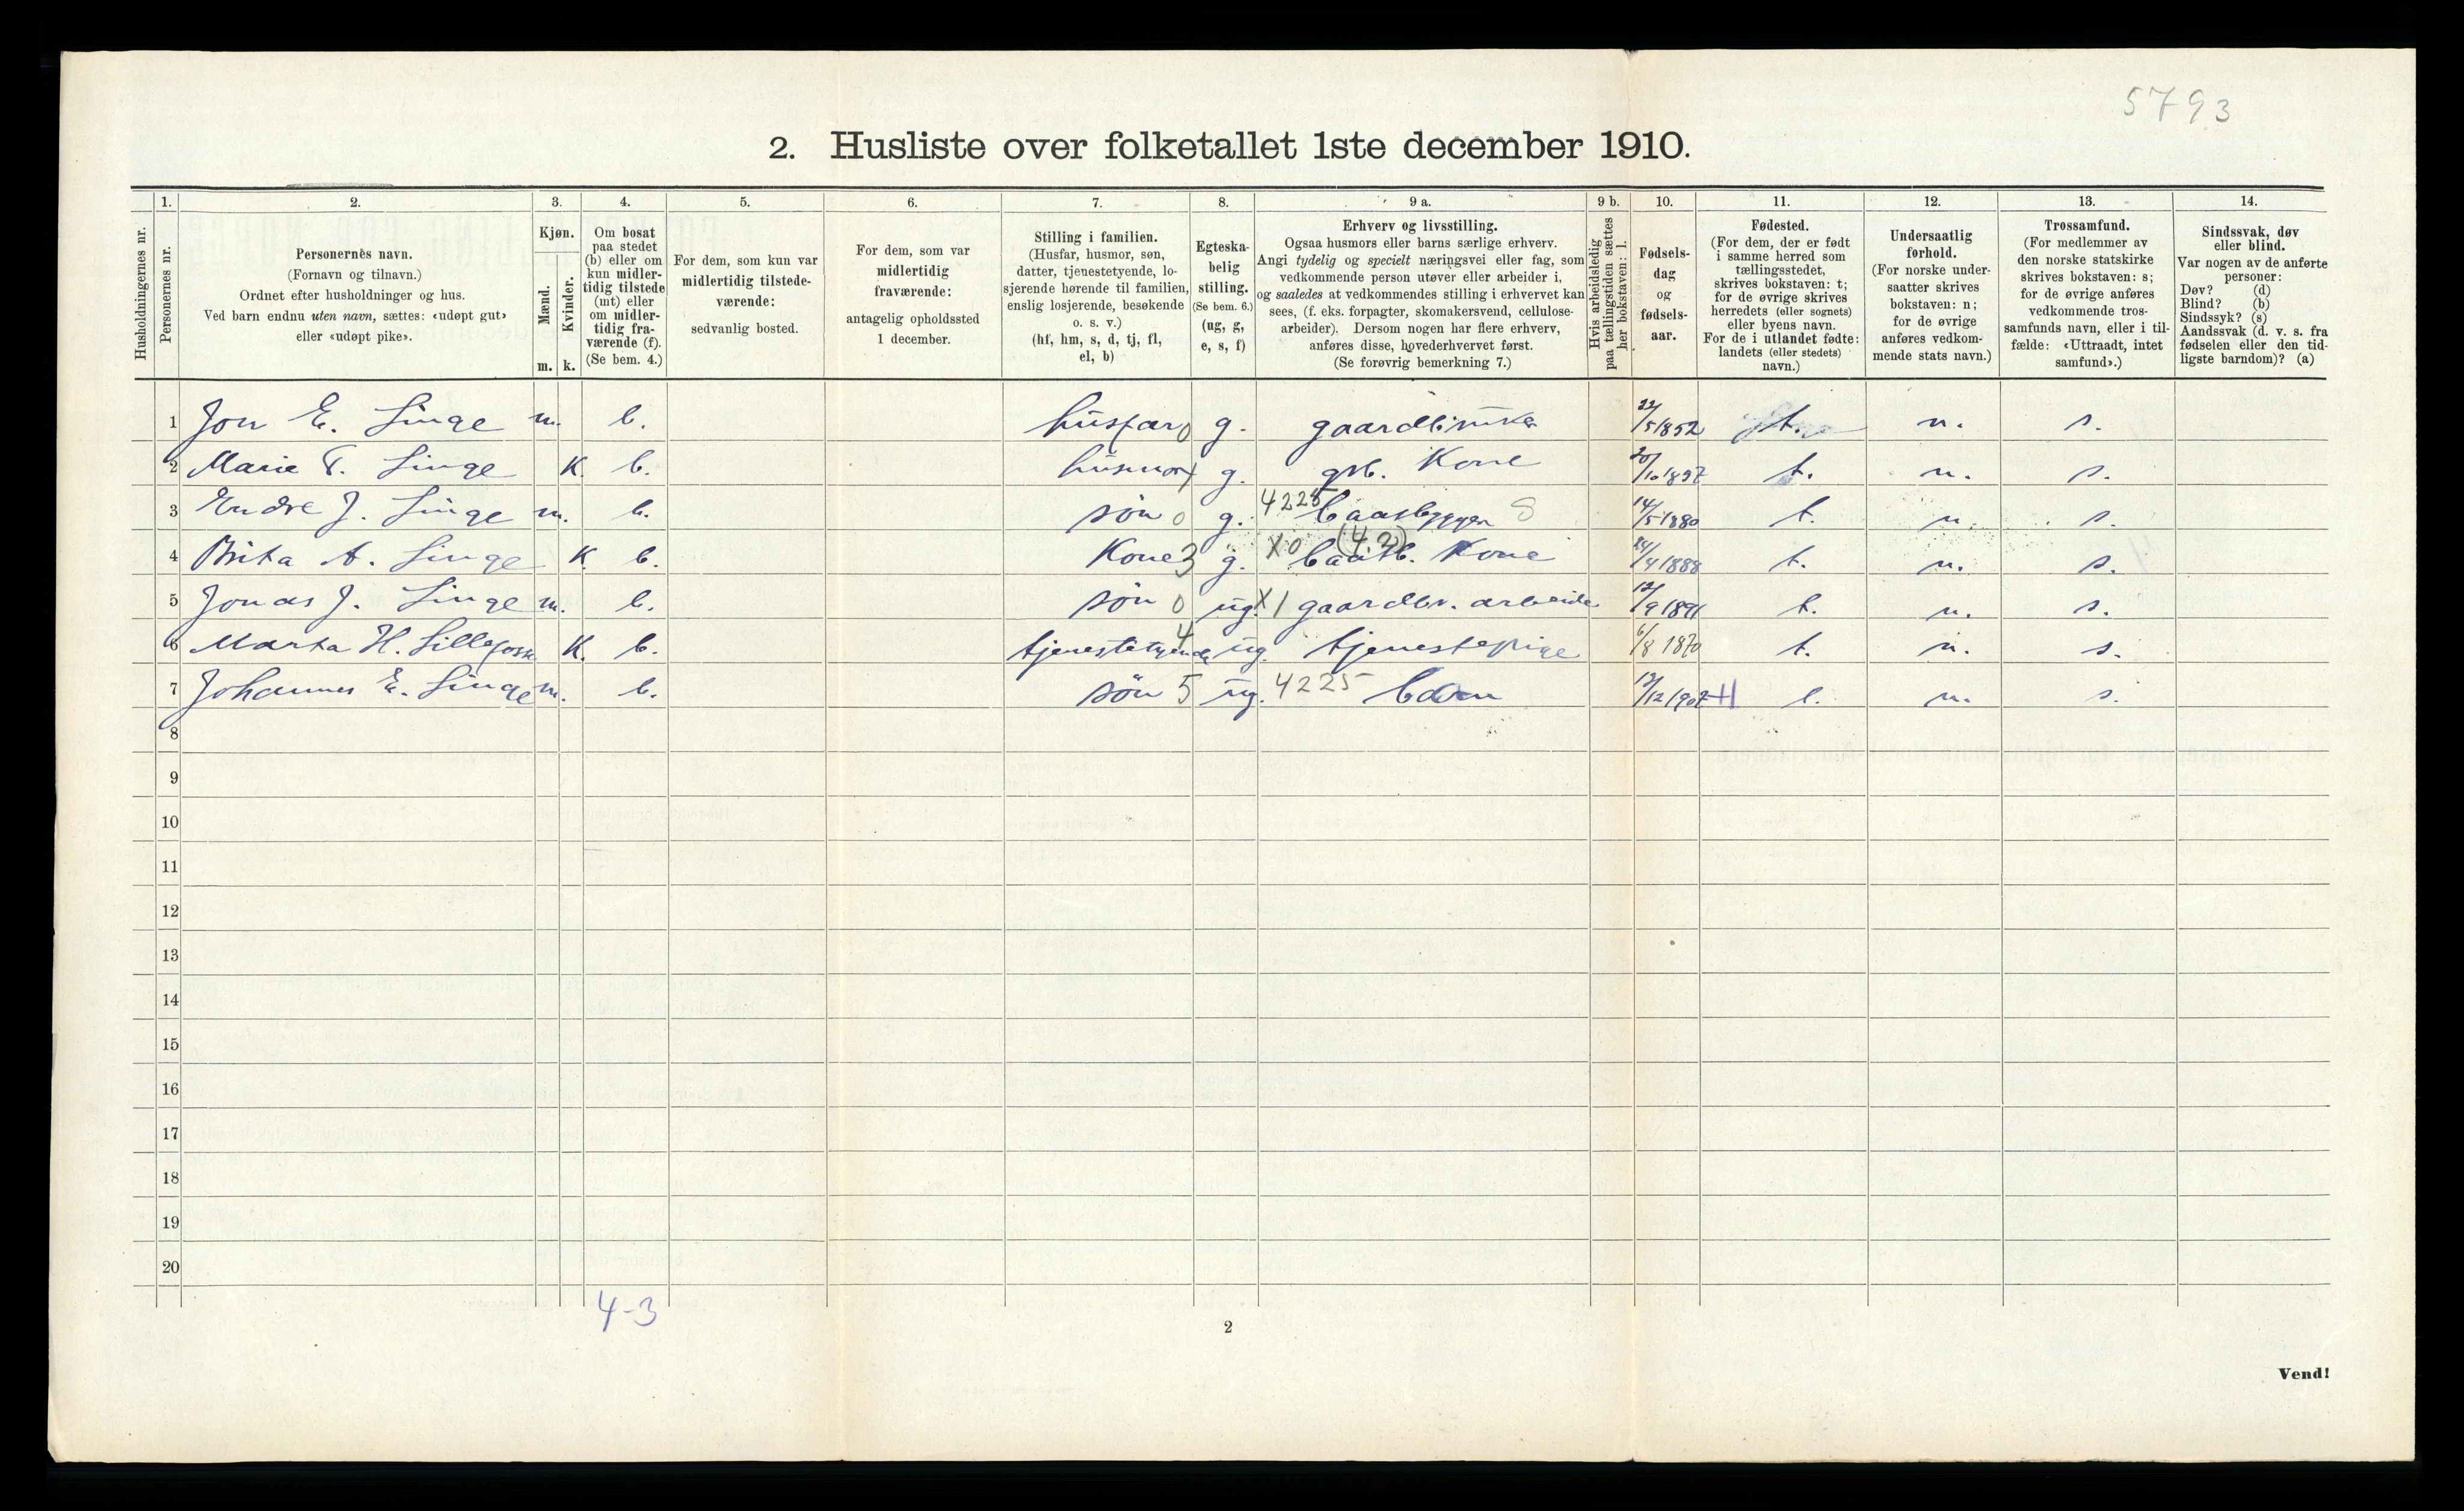 5793
2. Husliste over folketallet 1ste december 1910.
Husholdningernes nr.
1.
Personernes nr.
2.
Personernes navn.
(Fornavn og tilnavn.)
Ordnet efter husholdninger og hus.
Ved barn endnu uten navn, sættes: «udøpt gut»
eller «udøpt pike».
3.
Kjøn.
Mænd.
Kvinder.
m. k.
4.
Om bosat
paa stedet
(b) eller om
kun midler-
tidig tilstede
(mt) eller
om midler-
tidig fra-
værende (f).
(Se bem. 4.)
5.
For dem, som kun var
midlertidig tilstede-
værende:
sedvanlig bosted.
6.
For dem, som var
midlertidig
fraværende:
antagelig opholdssted
1 december.
7.
Stilling i familien.
(Husfar, husmor, søn,
datter, tjenestetyende, lo-
sjerende hørende til familien,
enslig losjerende, besøkende
o. s. v.)
(hf, hm, s, d, tj, fl,
el, b)
8.
Egteska-
belig
stilling.
(Se bem. 6.)
(ug, g,
e, s, f)
9 a.
Erhverv og livsstilling.
Ogsaa husmors eller barns særlige erhverv.
Angi tydelig og specielt næringsvei eller fag, som
vedkommende person utøver eller arbeider i,
og saaledes at vedkommendes stilling i erhvervet kan
sees, (f. eks. forpagter, skomakersvend, cellulose-
arbeider). Dersom nogen har flere erhverv,
anføres disse, hovederhvervet først.
(Se forøvrig bemerkning 7.)
9 b.
Hvis arbeidsledig
paa tællingstiden sættes
her bokstaven: l.
10.
Fødsels-
dag
og
fødsels-
aar.
11.
Fødested.
(For dem, der er født
i samme herred som
tællingsstedet,
skrives bokstaven: t;
for de øvrige skrives
herredets (eller sognets)
eller byens navn.
For de i utlandet fødte:
landets (eller stedets)
navn.)
12.
Undersaatlig
forhold.
(For norske under-
saatter skrives
bokstaven: n;
for de øvrige
anføres vedkom-
mende stats navn.)
13.
Trossamfund.
(For medlemmer av
den norske statskirke
skrives bokstaven: s;
for de øvrige anføres
vedkommende tros-
samfunds navn, eller i til-
fælde: «Uttraadt, intet
samfund».)
14.
Sindssvak, døv
eller blind.
Var nogen av de anførte
personer:
Døv? (d)
Blind? (b)
Sindssyk? (s)
Aandssvak (d. v. s. fra
fødselen eller den tid-
ligste barndom)? (a)
1 Jon E. Linge m. b. husfar 0 g. gaardbruker 22/5 1852 t. n. s.
2 Marie T. Linge K. b. husmor g. grb. Kone 20/10 1857 t. n. s.
3 Endre J. Linge m. b. søn 0 g. 4225 baatbygger S 14/5 1880 t. n. s.
4 Brita A. Linge K. b. Kone 3 g. X0 (42) baatb. Kone 24/4 1888 t. n. s.
5 Jonas J. Linge m. b. søn 0 ug. X1 gaardbr. arbeide 12/9 1891 t. n. s.
6 Marta H. Lillefosse K. b. tjenestetyende 4 ug. tjenestepige 6/8 1870 t. n. s.
7 Johannes E. Linge m. b. søn 5 ug. 4225 barn 13/12 1907 t. n. s.
8
9
10
11
12
13
14
15
16
17
18
19
20
4-3
2
Vend!